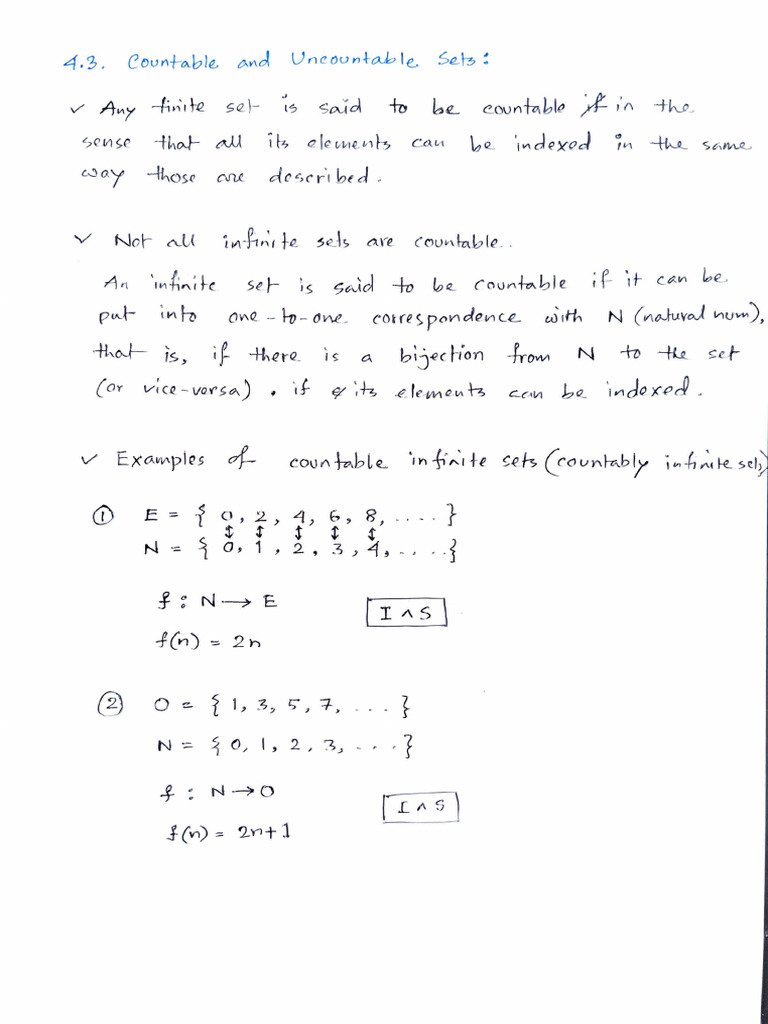 4.3. Countable and Uncountable Sets:
✓ Any finite set is said to be countable in the
sense that all its elements can be indexed in the same
way those are described.
✓ Not all infinite sets are countable..
An infinite set is said to be countable if it can be
put into one-to-one correspondence with N (natural num),
that is, if there is a bijection from N to the set
(or vice-versa). if its elements can be indexed.
✓ Examples of countable infinite sets (countably infinite sets)
① E = { 0, 2, 4, 6, 8, ..... }
↕ ↕ ↕ ↕ ↕
N = { 0, 1, 2, 3, 4, .....}
f : N → E
I ∧ S
f(n) = 2n
② O = { 1, 3, 5, 7, .... }
N = { 0, 1, 2, 3, .... }
f : N → O
I ∧ S
f(n) = 2n+1